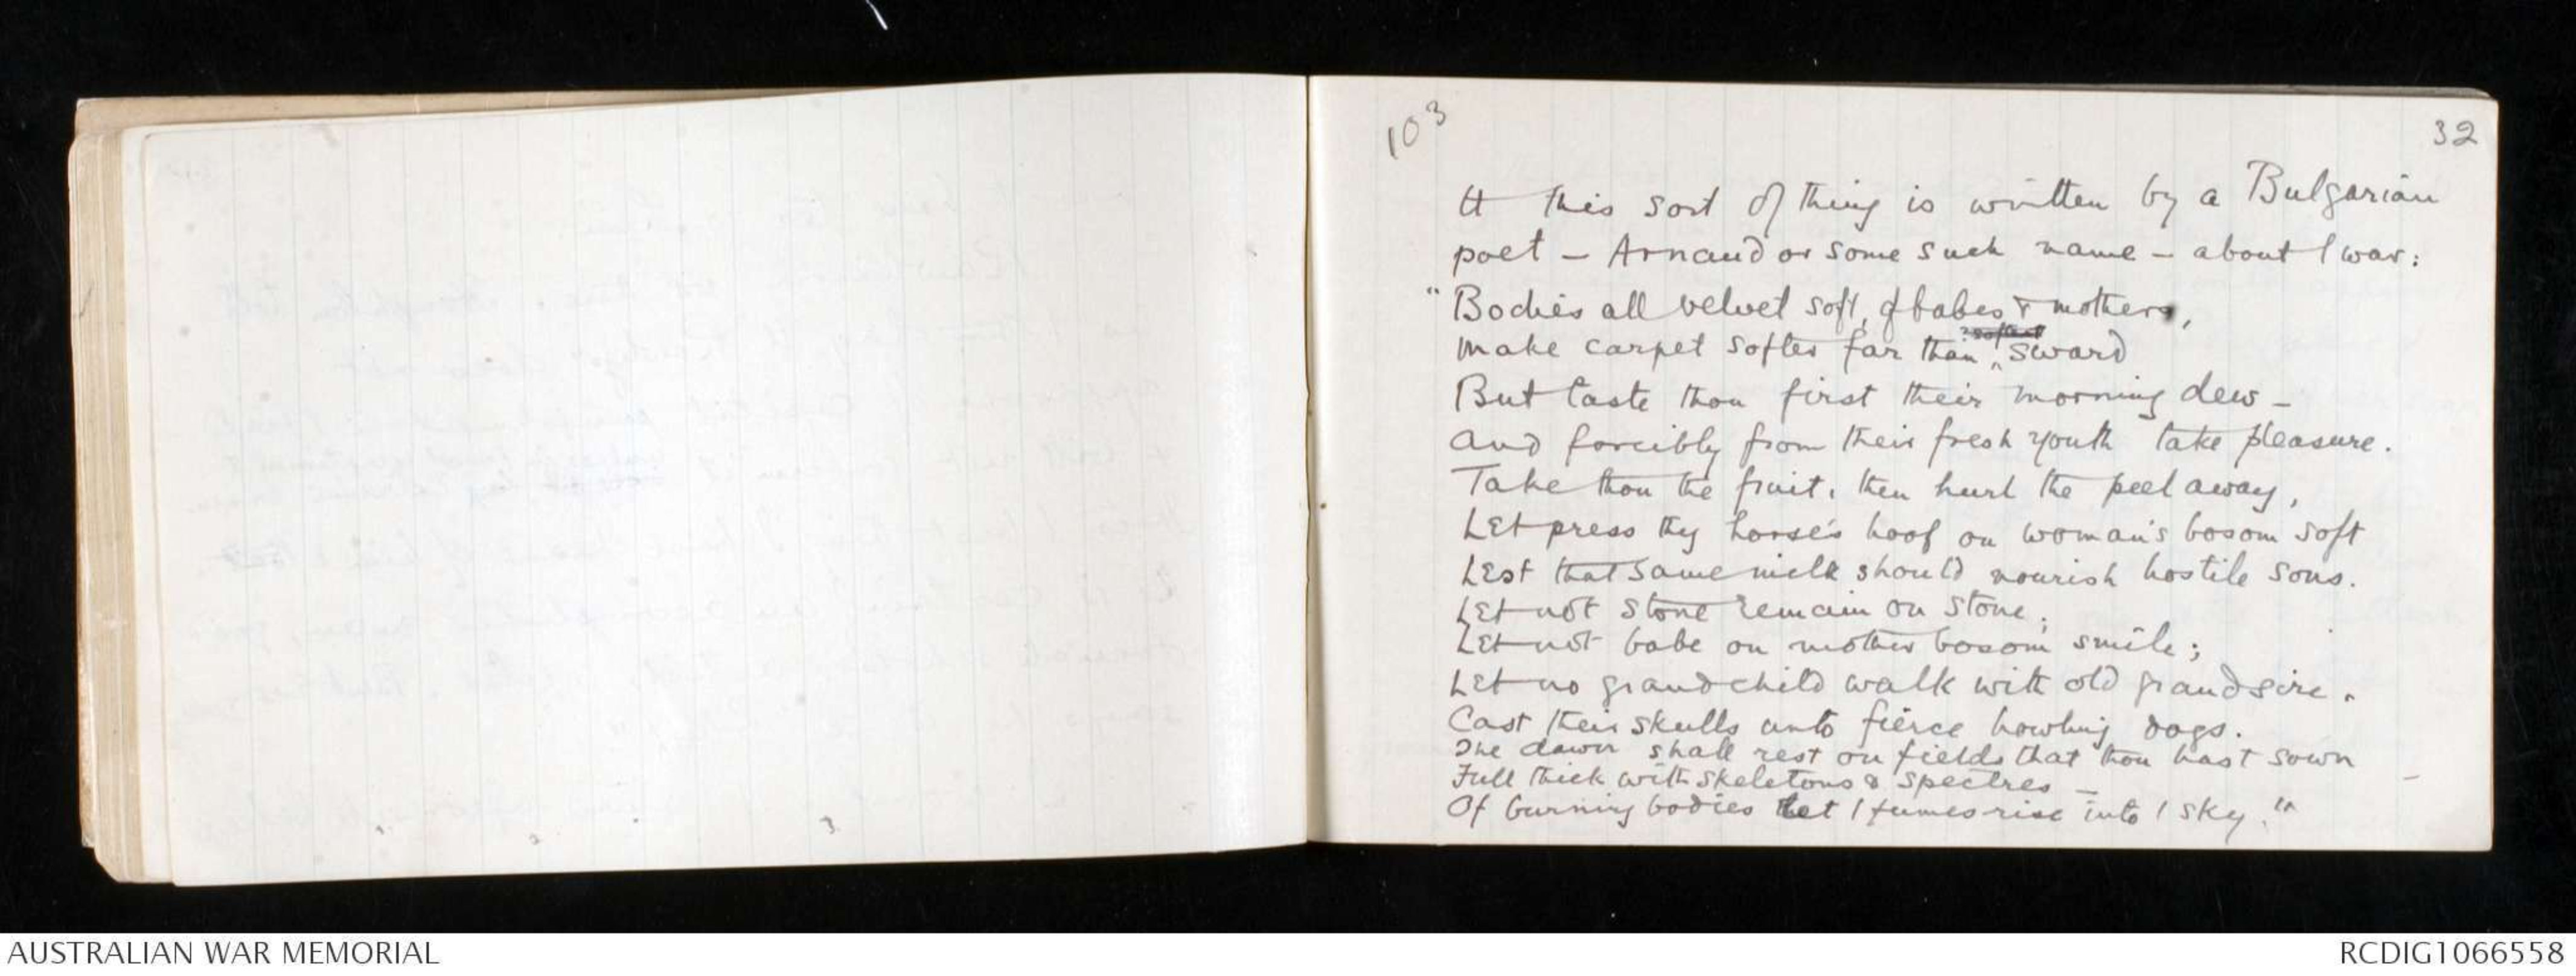 103
32
It this sort of thing is written by a Bulgarian
poet – Arnaud or some such name – about / war:
"Bodies all velvet soft, of babes & mothers,
? softest
Make carpet softer far than ^ sward
But taste thou first their morning dew –
And forcibly from their fresh youth take pleasure.
Take thou the fruit, then hurl the peel away,
Let press thy horse's hoof on woman's bosom soft
Lest that same milk should nourish hostile sons.
Let not stone remain on stone;
Let not babe on mother bosom smile;
Let no grandchild walk with old grandsire.
Cast their skulls unto fierce howling dogs.
The dawn shall rest on fields that thou hast sown
Full thick with skeletons & spectres –
Of burning bodies let / fumes rise into / sky."
AUSTRALIAN WAR MEMORIAL
RCDIG1066558